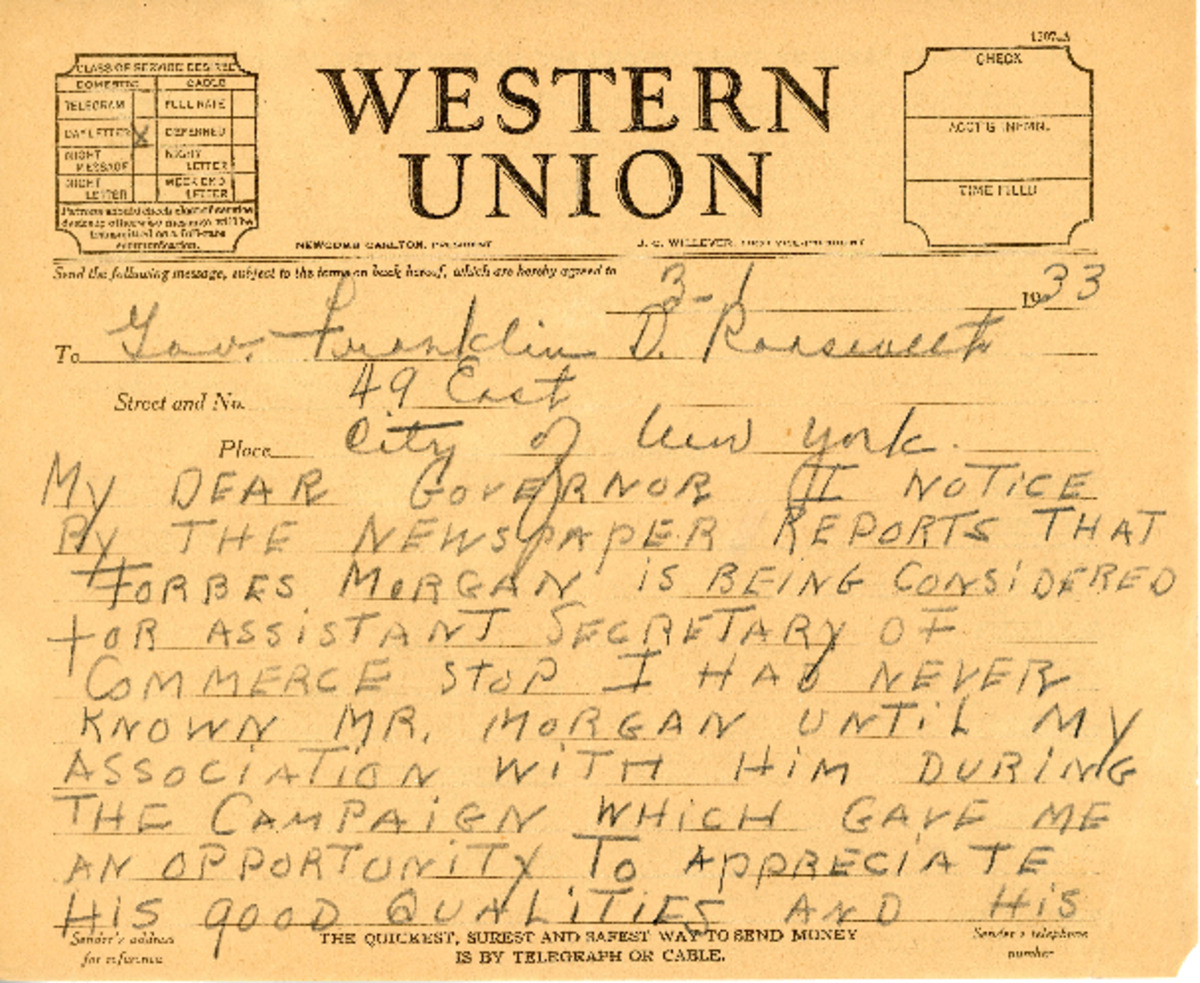 1207-A
CLASS OF SERVICE DESIRED
DOMESTIC CABLE
TELEGRAM FULL RATE
DAY LETTER X DEFERRED
NIGHT MESSAGE NIGHT LETTER
NIGHT LETTER WEEK END LETTER
Patrons should check class of service
desired; otherwise message will be
transmitted as a full-rate
communication.
WESTERN
UNION
NEWCOMB CARLTON, PRESIDENT J. C. WILLEVER, FIRST VICE-PRESIDENT
CHECK
ACCT'G INFMN.
TIME FILED
Send the following message, subject to the terms on back hereof, which are hereby agreed to
3-1 1933
To Gov. Franklin D. Roosevelt
Street and No. 49 East
Place City of New York.
MY DEAR GOVERNOR I NOTICE
BY THE NEWSPAPER REPORTS THAT
FORBES MORGAN IS BEING CONSIDERED
FOR ASSISTANT SECRETARY OF
COMMERCE STOP I HAD NEVER
KNOWN MR. MORGAN UNTIL MY
ASSOCIATION WITH HIM DURING
THE CAMPAIGN WHICH GAVE ME
AN OPPORTUNITY TO APPRECIATE
HIS GOOD QUALITIES AND HIS
Sender's address
for reference
THE QUICKEST, SUREST AND SAFEST WAY TO SEND MONEY
IS BY TELEGRAPH OR CABLE.
Sender's telephone
number